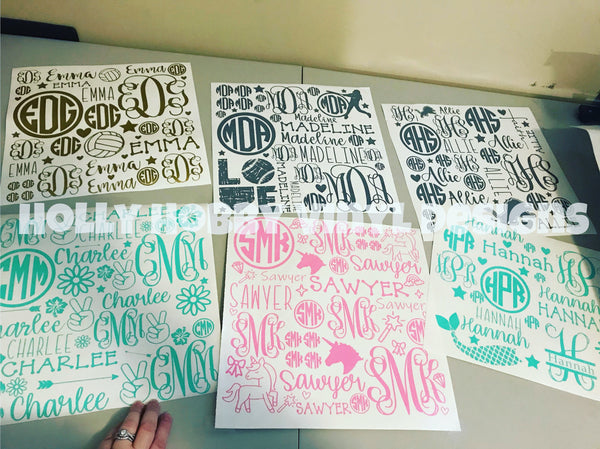 EDG Emma Emma EDG
EMMA
EMMA EDG
EDG EDG
EDG EMMA
EMMA EDG Emma
EDG Emma EDG
MDA MDA MDA
Madeline
MADELINE
MDA Madeline
MADELINE
LOVE
MADELINE
MDA
AHS Allie
AHS AHS
ALLIE
Allie
AHS Allie
HOLLY HOBBY VINYL DESIGNS
CHARLEE
CMM Charlee CMM
Charlee
Charlee
CHARLEE CMM
Charlee
CHARLEE CMM
Charlee
SMK
Sawyer
Sawyer
SAWYER SAWYER
SMK SMK
SMK SMK
Sawyer SMK
SAWYER SMK
HPR Hannah
HPR Hannah
HPR Hannah
HANNAH HANNAH
Hannah H
Hannah